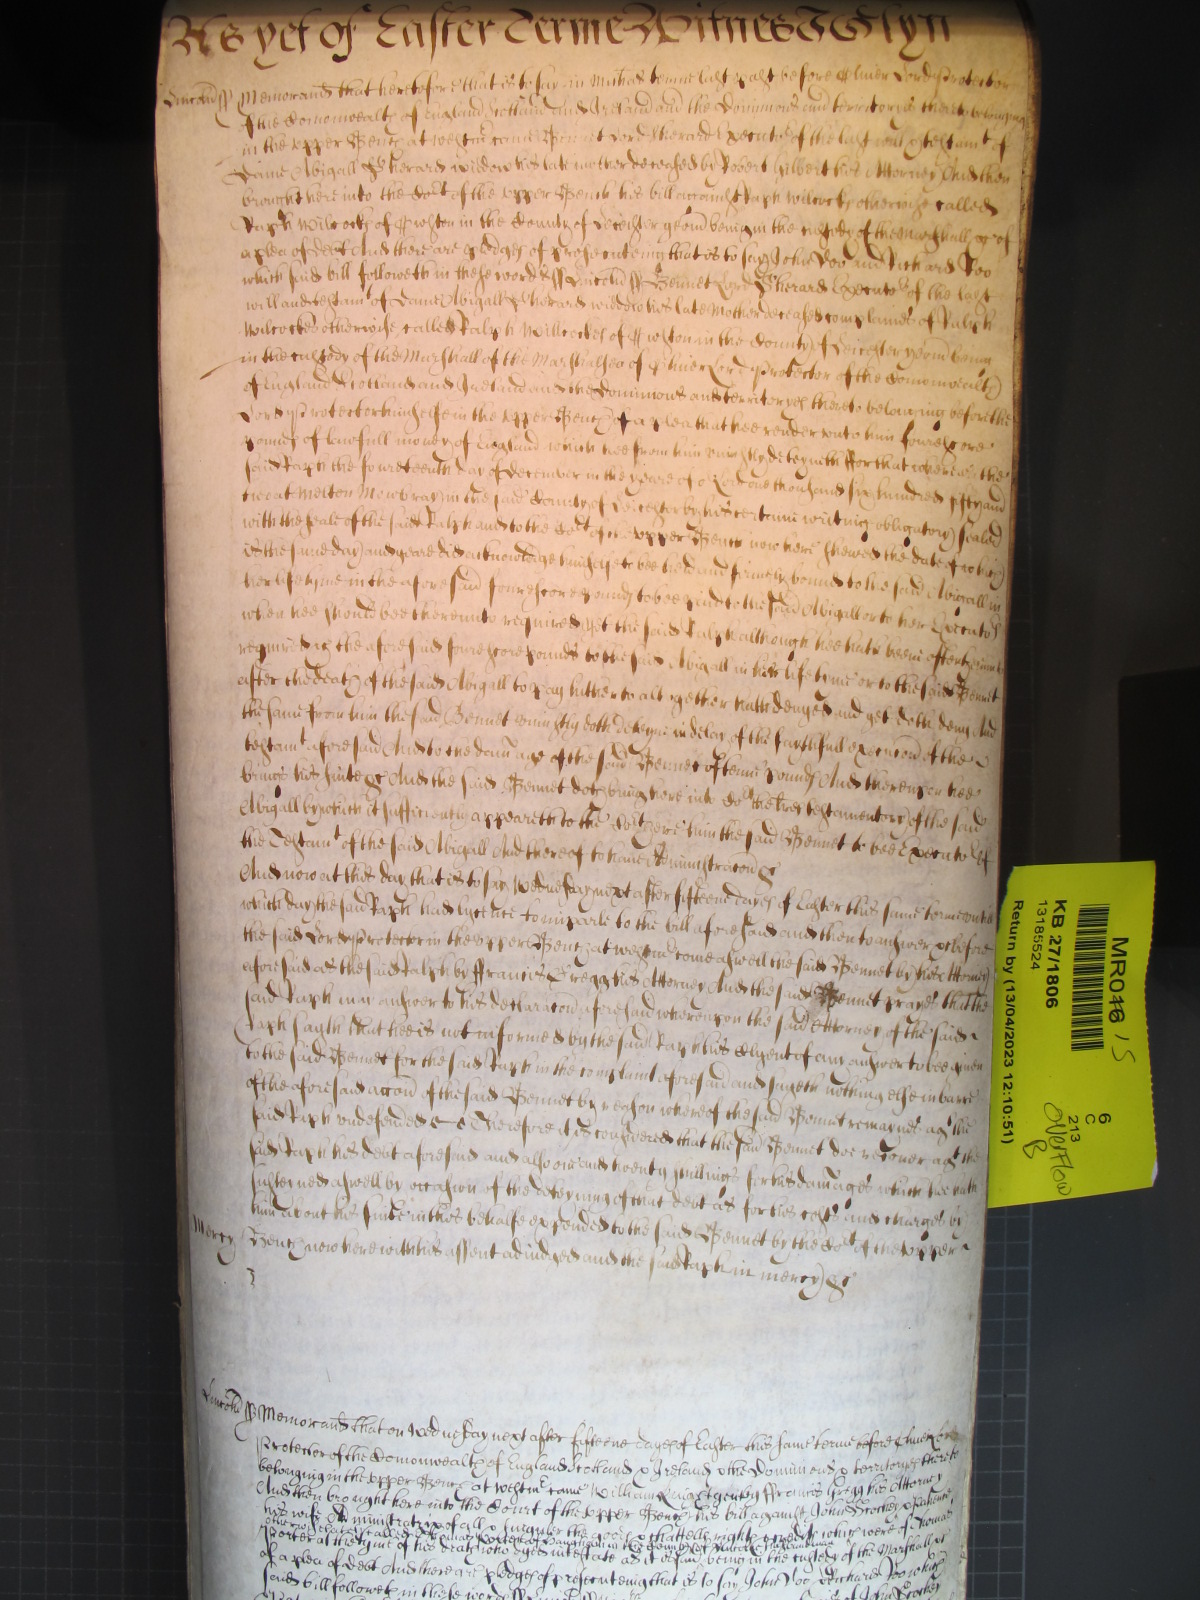 As yet of Easter Terme Witnes J Glyn
Lincoln ss Memorand that heretofore that is to say in Michas terme last past before Oliver Lord Protector
of the Comonwealth of England Scotland and Ireland and the Dominions and territoryes thereto belonging
in the upper Bench at westm came Bennet Lord Sherard Executor of the last will & testamt of
Dame Abigall Sherard widdow his late mother deceased by Robert Hilbert his Attorney And then
brought here into the Cort of the upper Bench his bill against Raph Wilcocks otherwise called
Raph Wilcocks of in the County of Leicester yeom being in the custody of the Marshall &c of
a plea of debt And there are pledges of prosecuteing that is to say John Doo and Richard Roo
which said bill followeth in these words ss Lincoln ss Bennet Lord Sherard Executor of the last
will and testamt of Dame Abigall Sherard widdow his late Mother deceased complaines of Ralph
Wilcockes otherwise called Ralph Willcockes of in the County of Leicester yeom being
in the custody of the Marshall of the Marshalsea of Oliver Lord Protector of the Comonwealth
of England Scotland and Ireland and the Dominions and territoryes thereto belonging before the
Lord Protector himselfe in the upper Bench of a plea that hee render unto him fourescore
pounds of lawfull money of England which hee from him uniustly deteyneth For that whereas the
said Raph the fourteenth day of December in the yeare of or Lord one thousand six hundred fifty and
at Melton Mowbray in the said County of Leicester by his certaine writing obligatory sealed
with the seale of the said Ralph and to the Cort of the upper Bench now here shewed the date of which
is the same day and yeare did acknowledge himselfe to bee held and firmely bound to the said Abigall in
her life tyme in the aforesaid fourescore pounds to bee paid to the said Abigall or to her Executors
when hee should bee thereunto required Yet the said Ralph although hee hath beene oftentymes
required the aforesaid fourescore pounds to the said Abigall in her life tyme or to the said Bennet
after the death of the said Abigall to pay hitherto altogether hath denyed and yet doth deny And
the same from him the said Bennet uniustly doth deteyne in delay of the faythfull execucon of the
testamt aforesaid And to the damage of the said Bennet of tenne pounds And thereupon hee
brings his suite &c And the said Bennet doth bring here into Cort the lres testamentory of the said
Abigall by which it sufficiently appeareth to the Cort here him the said Bennet to bee Executor of
the Testamt of the said Abigall And thereof to have Administracon &c
And now at this day that is to say Wednesday next after fifteene dayes of Easter this same terme untill
which day the said Raph had lycence to imparle to the bill aforesaid and then to answer &c before
the said Lord Protector in the upper Bench at westm come aswell the said Bennet by his Attorney
aforesaid as the said Ralph by Francis Gregg his Attorney And the said Bennet prayes that the
said Raph may answer to his declaracon aforesaid whereupon the said Attorney of the said
Raph sayth that hee is not informed by the said Raph his Clyent of any answer to bee given
to the said Bennet for the said Raph in the complaint aforesaid and sayeth nothing else in barre
of the aforesaid accon of the said Bennet by reason whereof the said Bennet remaynes agt the
said Raph undefended &c Therefore it is considered that the said Bennet doe recover agt the
said Raph his debt aforesaid and also one and twenty shillings for his damages which hee hath
susteyned aswell by occasion of the deteyning of that debt as for his costs and charges by
him about his suite in this behalfe expended to the said Bennet by the Cort of the upper
Mercy Bench now here with his assent adiudged and the said Raph in mercy &c
Lincoln ss Memorand that on Wednesday next after fifteene dayes of Easter this same terme before Oliver Lord
Protector of the Comonwealth of England Scotland & Ireland & the Dominions & territoryes thereto
belonging in the upper Bench at westm came William gent by Francis Gregg his Attorney
And then brought here into the Court of the upper Bench his bill against John Brockes & Patience
his wife Administratrix of all & singuler the goods & chattells rights & credits which were of Thomas
Porter at the tyme of his death who dyed intestate as it is said being in the custody of the Marshall &c
of a plea of debt And there are pledges of prosecuteing that is to say John Doo & Richard Roo which
said bill followeth in these words
MR016 15
KB 27/1806
13185524
Return by (13/04/2023 12:10:51)
6
C
213
Overflow
B